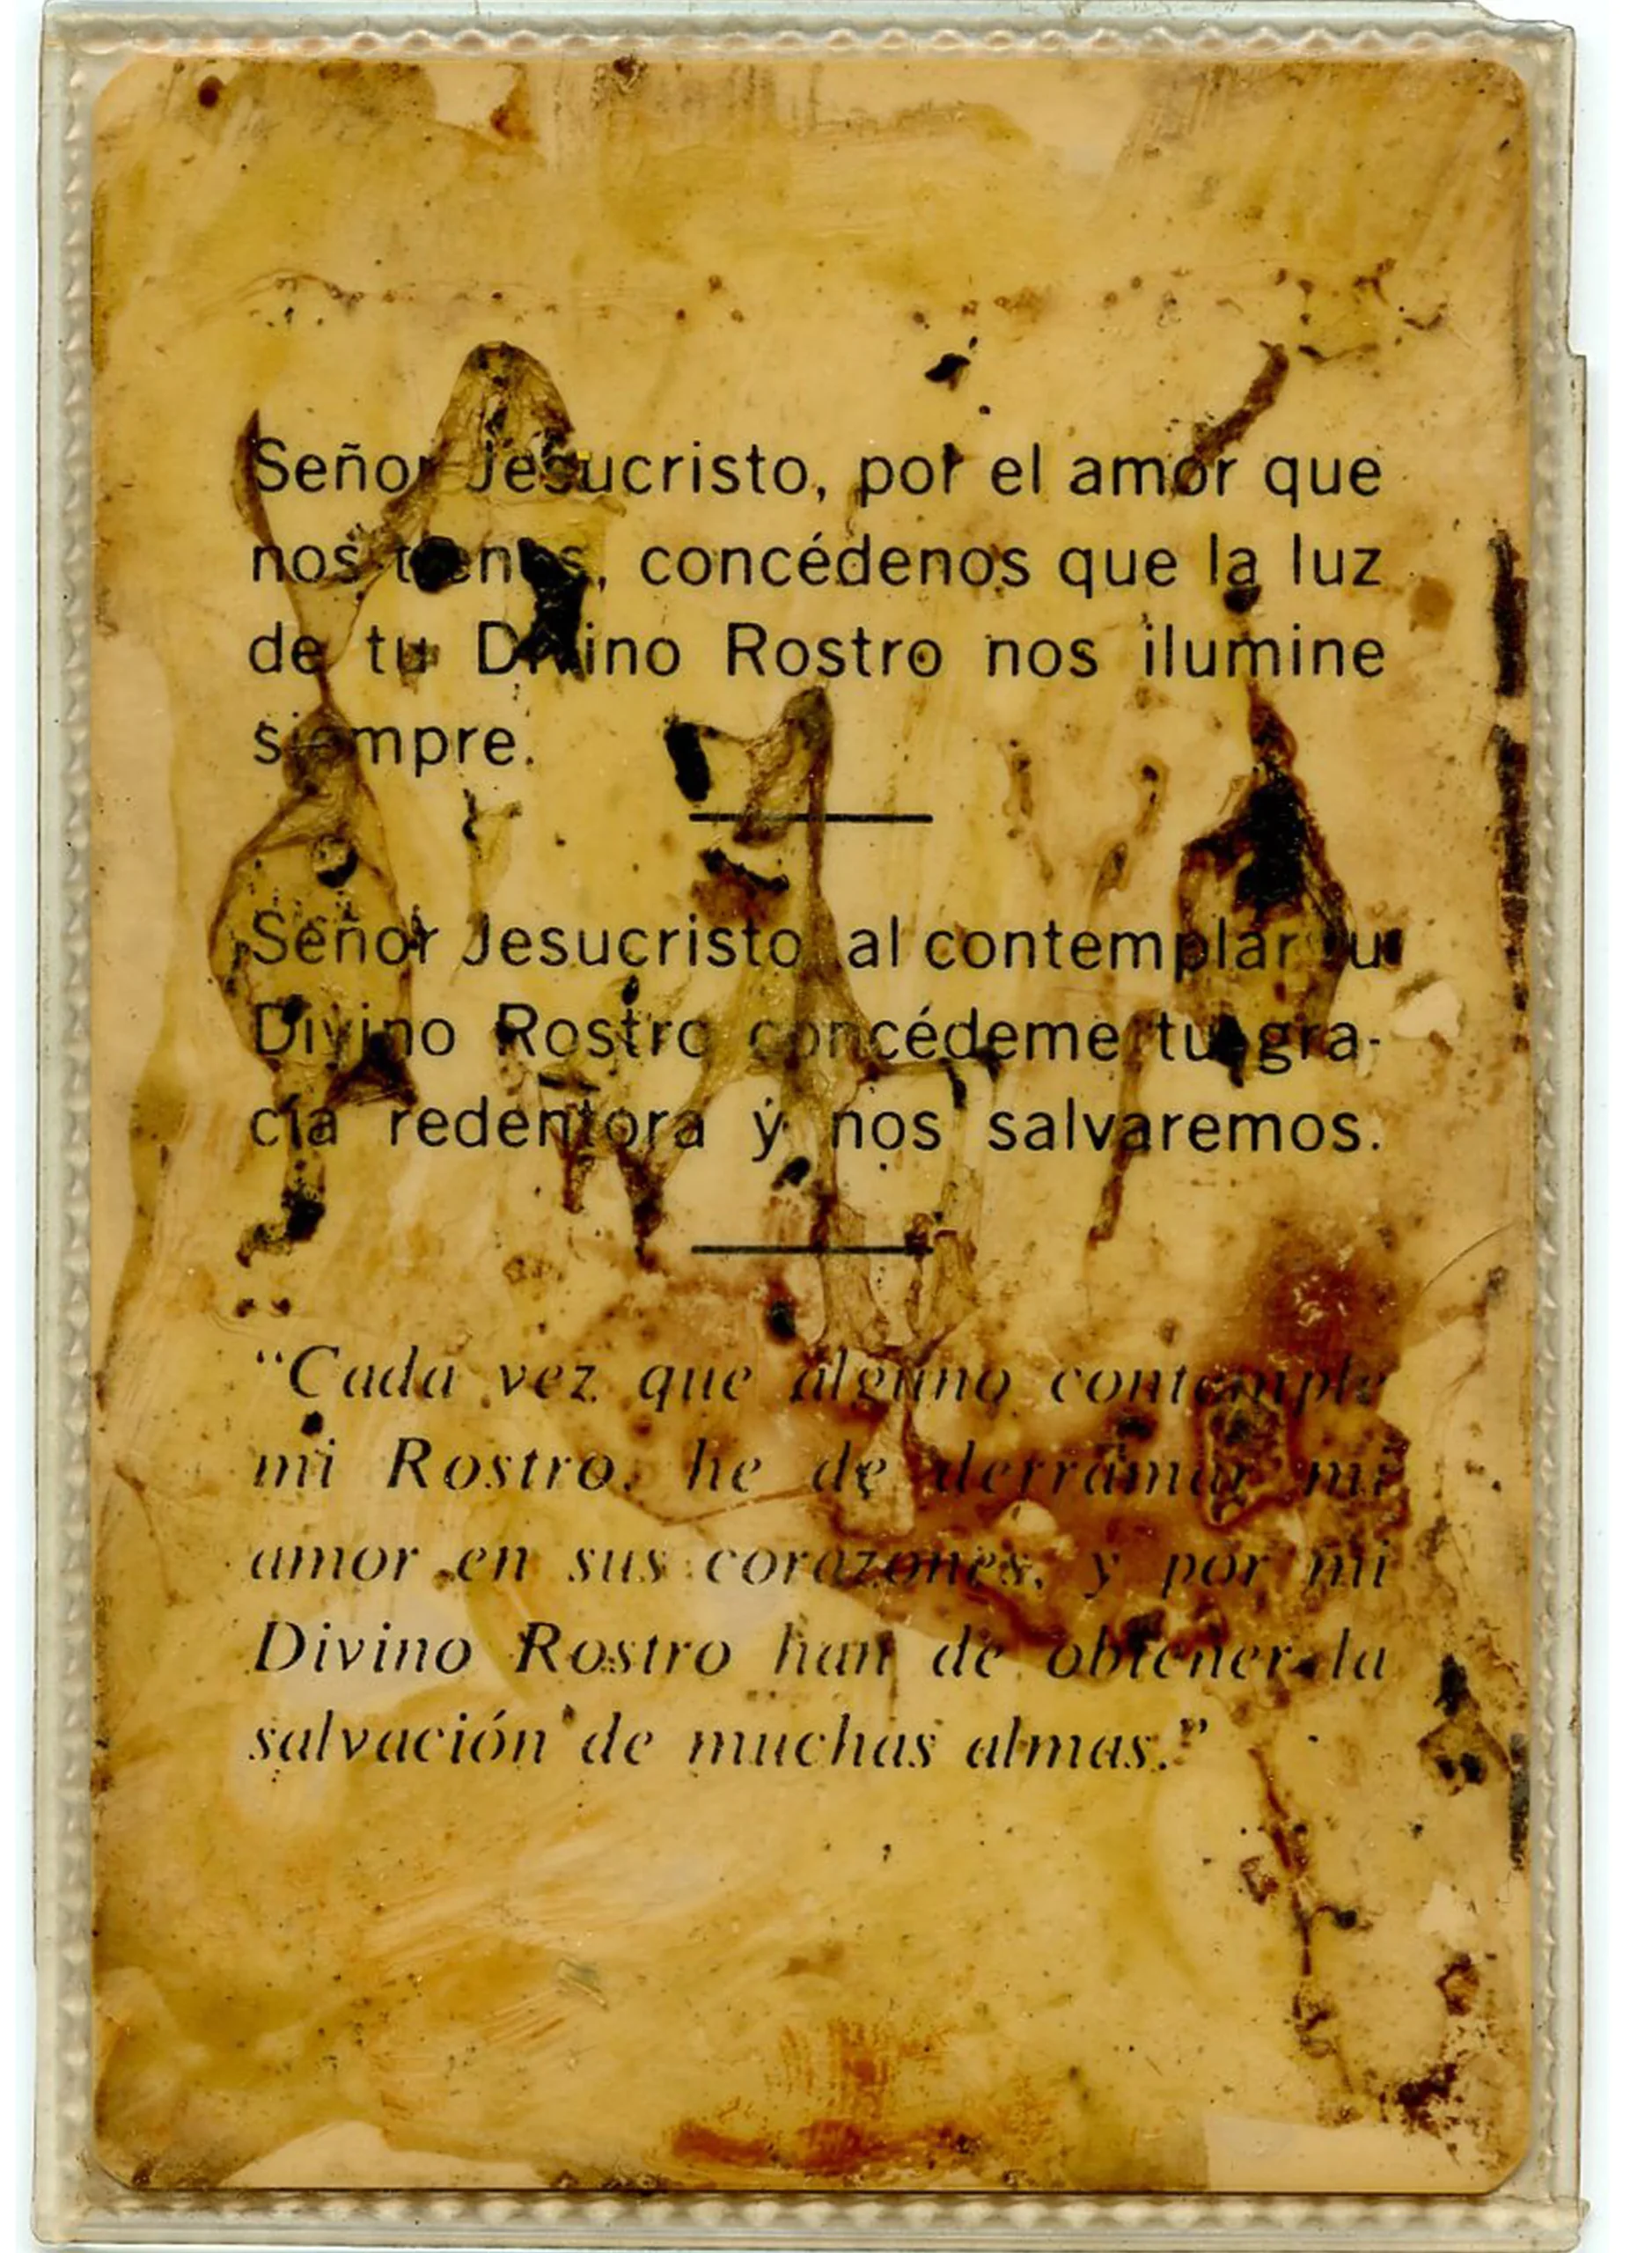 Señor Jesucristo, por el amor que
nos tienes, concédenos que la luz
de tu Divino Rostro nos ilumine
siempre.
Señor Jesucristo, al contemplar tu
Divino Rostro concédeme tu gra-
cia redentora y nos salvaremos.
“Cada vez que alguno contemple
mi Rostro, he de derramar mi
amor en sus corazones, y por mi
Divino Rostro han de obtener la
salvación de muchas almas.”